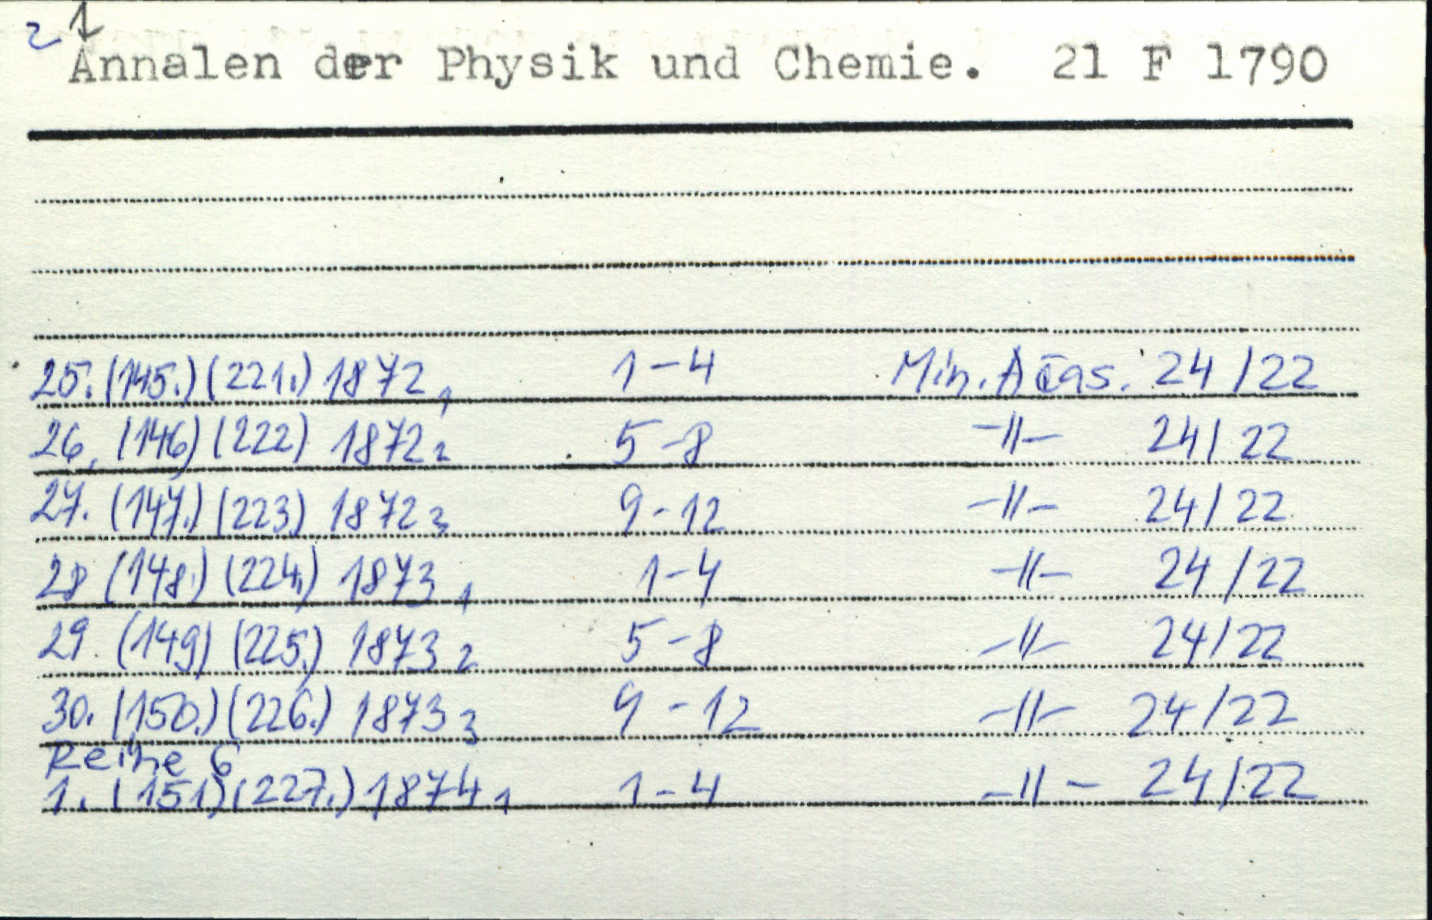 2 1
Annalen der Physik und Chemie. 21 F 1790
25. (145.) (221.) 1872, 1 1-4 Min. Ačas. 24/22
26. (146) (222) 1872 2 5-8 -||- 24/22
27. (147.) (223) 1872 3 9-12 -||- 24/22
28 (148.) (224.) 1873, 1 1-4 -||- 24/22
29. (149) (225.) 1873 2 5-8 -||- 24/22
30. (150.) (226.) 1873 3 9-12 -||- 24/22
Reihe 6
1. (151) (227.) 1874 1 1-4 -||- 24/22